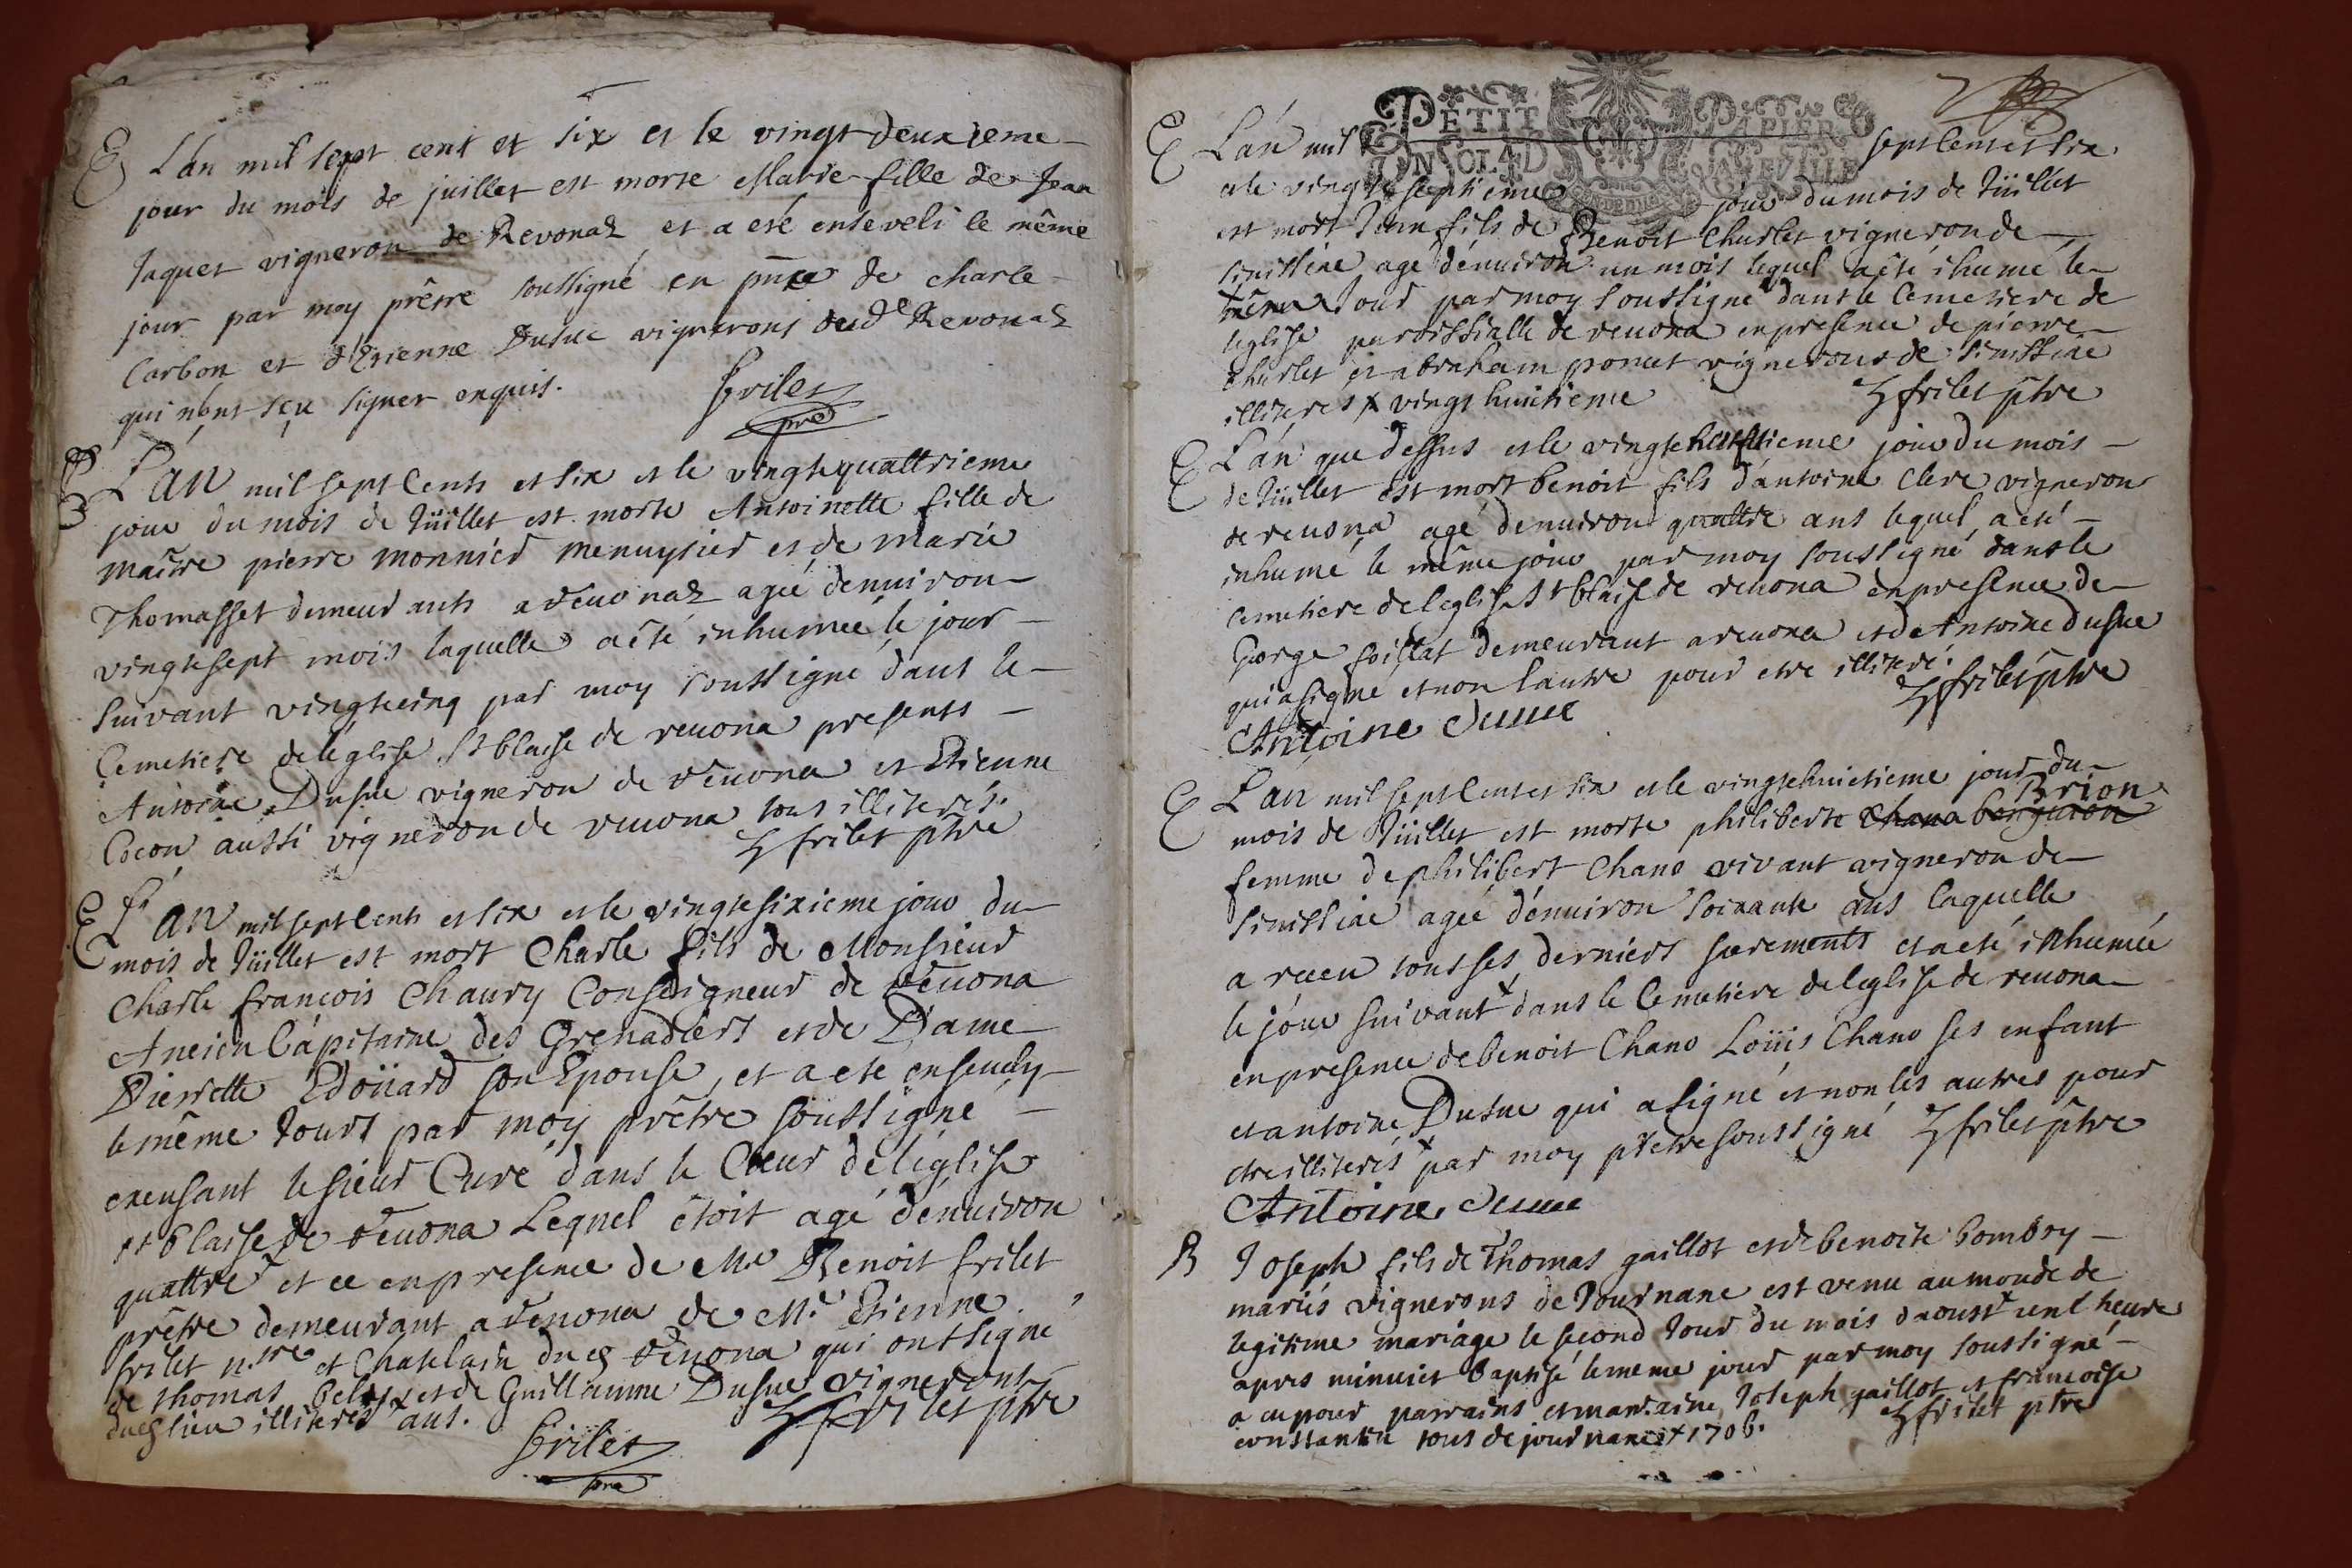 E L'an mil sept cent et six et le vingt deuxieme
jour du mois de juillet est morte Marie fille de Jean
Jaquet vigneron de Revonaz et a esté enseveli le même
jour par moy prêtre soussigné en pñce de charle
Carbon et d'Etienne Dusuc vignerons dud Revonaz
qui n'ont sçu signer enquis. frilet
pre
E L'an mil sept cents et six et le vingtequattrieme
jour du mois de Jüillet est morte Antoinette fille de
maître pierre monnier menuysier et de marie
Thomasset demeurants a revonaz agée denuiron
vingtesept mois laquelle a êté inhumée le jour
suivant vingtcinq par moy soussigné dans le
Cemetiere de léglise St blaise de reuona presents
Antoine Dusuc vigneron de reuona et Etienne
Cocon aussi vigneron de reuona tous illiterés.
frilet ptre
E L'an mil sept cents et six et le vingtesixieme jour du
mois de Jüillet est mort Charle fils de Monsieur
Charle françois Chaury Conseigneur de reuona
Ancien Capitaine des Grenadiers et de Dame
Pierrette Edoüard son Epouse, et a ete enseuely
le même Jours par moy prêtre soussigné
excusant le sieur Curé dans le Cœur de léglise
st blaise de reuona Lequel êtoit agé dénuiron
quattre x et ce en presence de Mre Benoit frilet
prêtre demeurant a reuona de Mr Etienne
frilet n.re et Chatelain dud reuona qui ont signé
de thomas et de Guillaume Dusuc vignerons
dud lieu illiterés x ans. frilet ptre
frilet
pre
PETIT PAPIER
UN SOL 4 D LA FEVILLE
E L'an mil sept cents et six
et le vingte septieme jour du mois de Jüillet
est mort Jean fils de Benoit Charlet vigneron de
simissiae age dénuiron un mois lequel a êté ihumé le
même Jour par moy soussigné dans le Cemetiere de
leglise paroissialle de reuona en presence de pierre
Charlet et abraham poncet vignerons de simissiae
illiteres x vingt huictieme frilet ptre
E L'an que dessus et le vingtehuictieme jour du mois
de Jüillet est mort benoit fils d'antoine Clerc vigneron
de reuona agé denuiron quattre ans lequel a eté
inhumé le même jour par moy soussigné dans le
cemetiere de leglise St blaise de reuona en presence de
George foillat demeurant a reuona et de Antoine dusuc
qui a signé et non lautre pour etre illiteré.
frilet ptre
Antoine dusuc
E L'an mil sept cents et six et le vingtehuictieme jour du
Brion
mois de Jüillet est morte philiberte Chana
femme de philibert Chano vivant vigneron de
simissiae agée dénuiron soixante ans laquelle
a receu tous ses derniers sacrements et a eté inhumée
le jour suivant x dans le Cemetiere de leglise de reuona
en presence de benoit Chano Loüis Chano ses enfant
et antoine Dusuc qui a signé et non les autres pour
etre illiterés x par moy prêtre soussigné frilet ptre
Antoine dusuc
B Joseph fils de Thomas gaillot et de benoite bombry
mariés vignerons de Journane est venu au monde de
legitime mariage le second Jour du mois daoust x une heure
apres minuict baptisé le meme jour par moy soussigné
a eu pour parrains et marraine Joseph gaillot et francoise
constantin tous de journans x 1706. frilet ptre